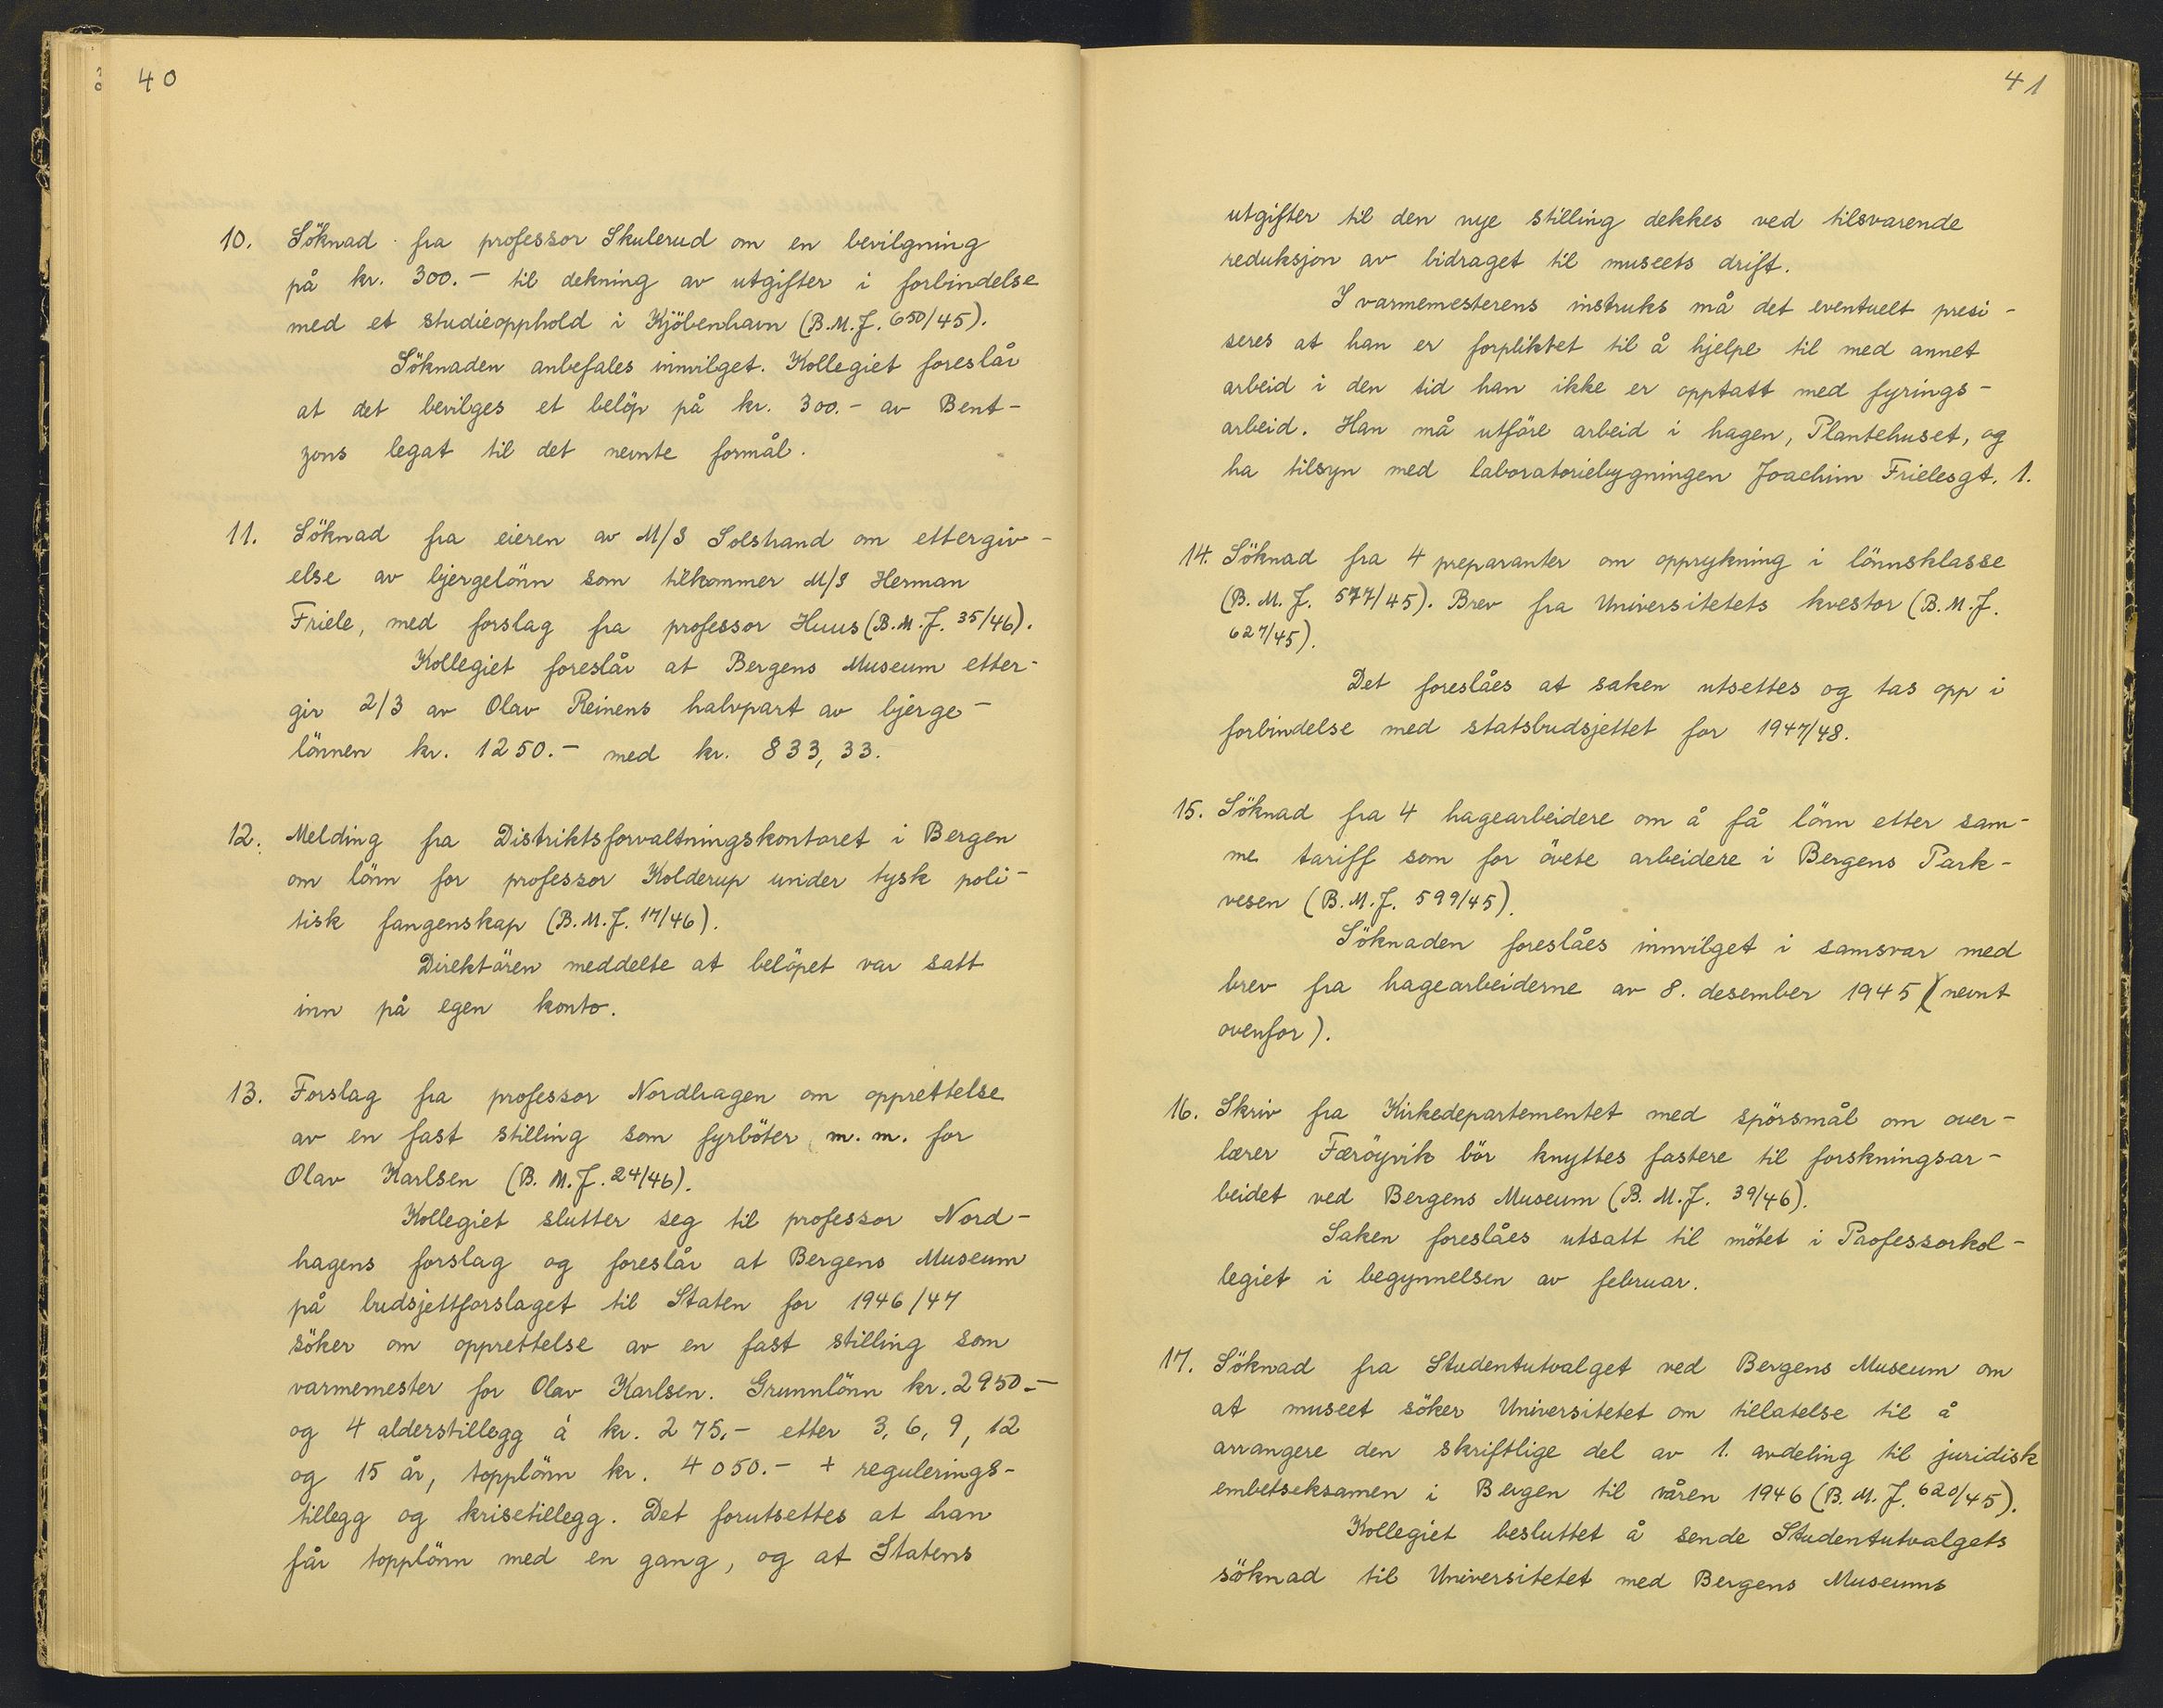 40
10. Söknad fra professor Skulerud om en bevilgning
på kr. 300.- til dekning av utgifter i forbindelse
med et studieopphold i Kjöbenhavn (B.M.J. 650/45).
Söknaden anbefales innvilget. Kollegiet foreslår
at det bevilges et belöp på kr. 300.- av Bent-
zons legat til det nevnte formål.
11. Söknad fra eieren av M/S Solstrand om ettergiv-
else av bjergelönn som tilkommer M/S Herman
Friele, med forslag fra professor Huus (B.M.J. 35/46).
Kollegiet foreslår at Bergens Museum etter-
gir 2/3 av Olav Reinens halvpart av bjerge-
lönnen kr. 1250.- med kr. 833,33.
12. Melding fra Distriktsforvaltningskontoret i Bergen
om lönn for professor Kolderup under tysk poli-
tisk fangenskap (B.M.J. 17/46).
Direktören meddelte at belöpet var satt
inn på egen konto.
13. Forslag fra professor Nordhagen om opprettelse
av en fast stilling som fyrböter m.m. for
Olav Karlsen (B.M.J. 24/46).
Kollegiet slutter seg til professor Nord-
hagens forslag og foreslår at Bergens Museum
på budsjettforslaget til Staten for 1946/47
söker om opprettelse av en fast stilling som
varmemester for Olav Karlsen. Grunnlönn kr. 2950.-
og 4 alderstillegg à kr. 275.- etter 3, 6, 9, 12
og 15 år, topplönn kr. 4050.- + regulerings-
tillegg og krisetillegg. Det forutsettes at han
får topplönn med en gang, og at Statens
41
utgifter til den nye stilling dekkes ved tilsvarende
reduksjon av bidraget til museets drift.
I varmemesterens instruks må det eventuelt presi-
seres at han er forpliktet til å hjelpe til med annet
arbeid i den tid han ikke er opptatt med fyrings-
arbeid. Han må utföre arbeid i hagen, Plantehuset, og
ha tilsyn med laboratoriebygningen Joachim Frielesgt. 1.
14. Söknad fra 4 preparanter om opprykning i lönnsklasse
(B.M.J. 577/45). Brev fra Universitetets kvestor (B.M.J.
627/45).
Det foreslåes at saken utsettes og tas opp i
forbindelse med statsbudsjettet for 1947/48.
15. Söknad fra 4 hagearbeidere om å få lönn etter sam-
me tariff som for övete arbeidere i Bergens Park-
vesen (B.M.J. 599/45).
Söknaden foreslåes innvilget i samsvar med
brev fra hagearbeiderne av 8. desember 1945 (nevnt
ovenfor).
16. Skriv fra Kirkedepartementet med spörsmål om over-
lærer Færöyvik bör knyttes fastere til forskningsar-
beidet ved Bergens Museum (B.M.J. 39/46).
Saken foreslåes utsatt til mötet i Professorkol-
legiet i begynnelsen av februar.
17. Söknad fra Studentutvalget ved Bergens Museum om
at museet söker Universitetet om tillatelse til å
arrangere den skriftlige del av 1. avdeling til juridisk
embetseksamen i Bergen til våren 1946 (B.M.J. 620/45).
Kollegiet besluttet å sende Studentutvalgets
söknad til Universitetet med Bergens Museums